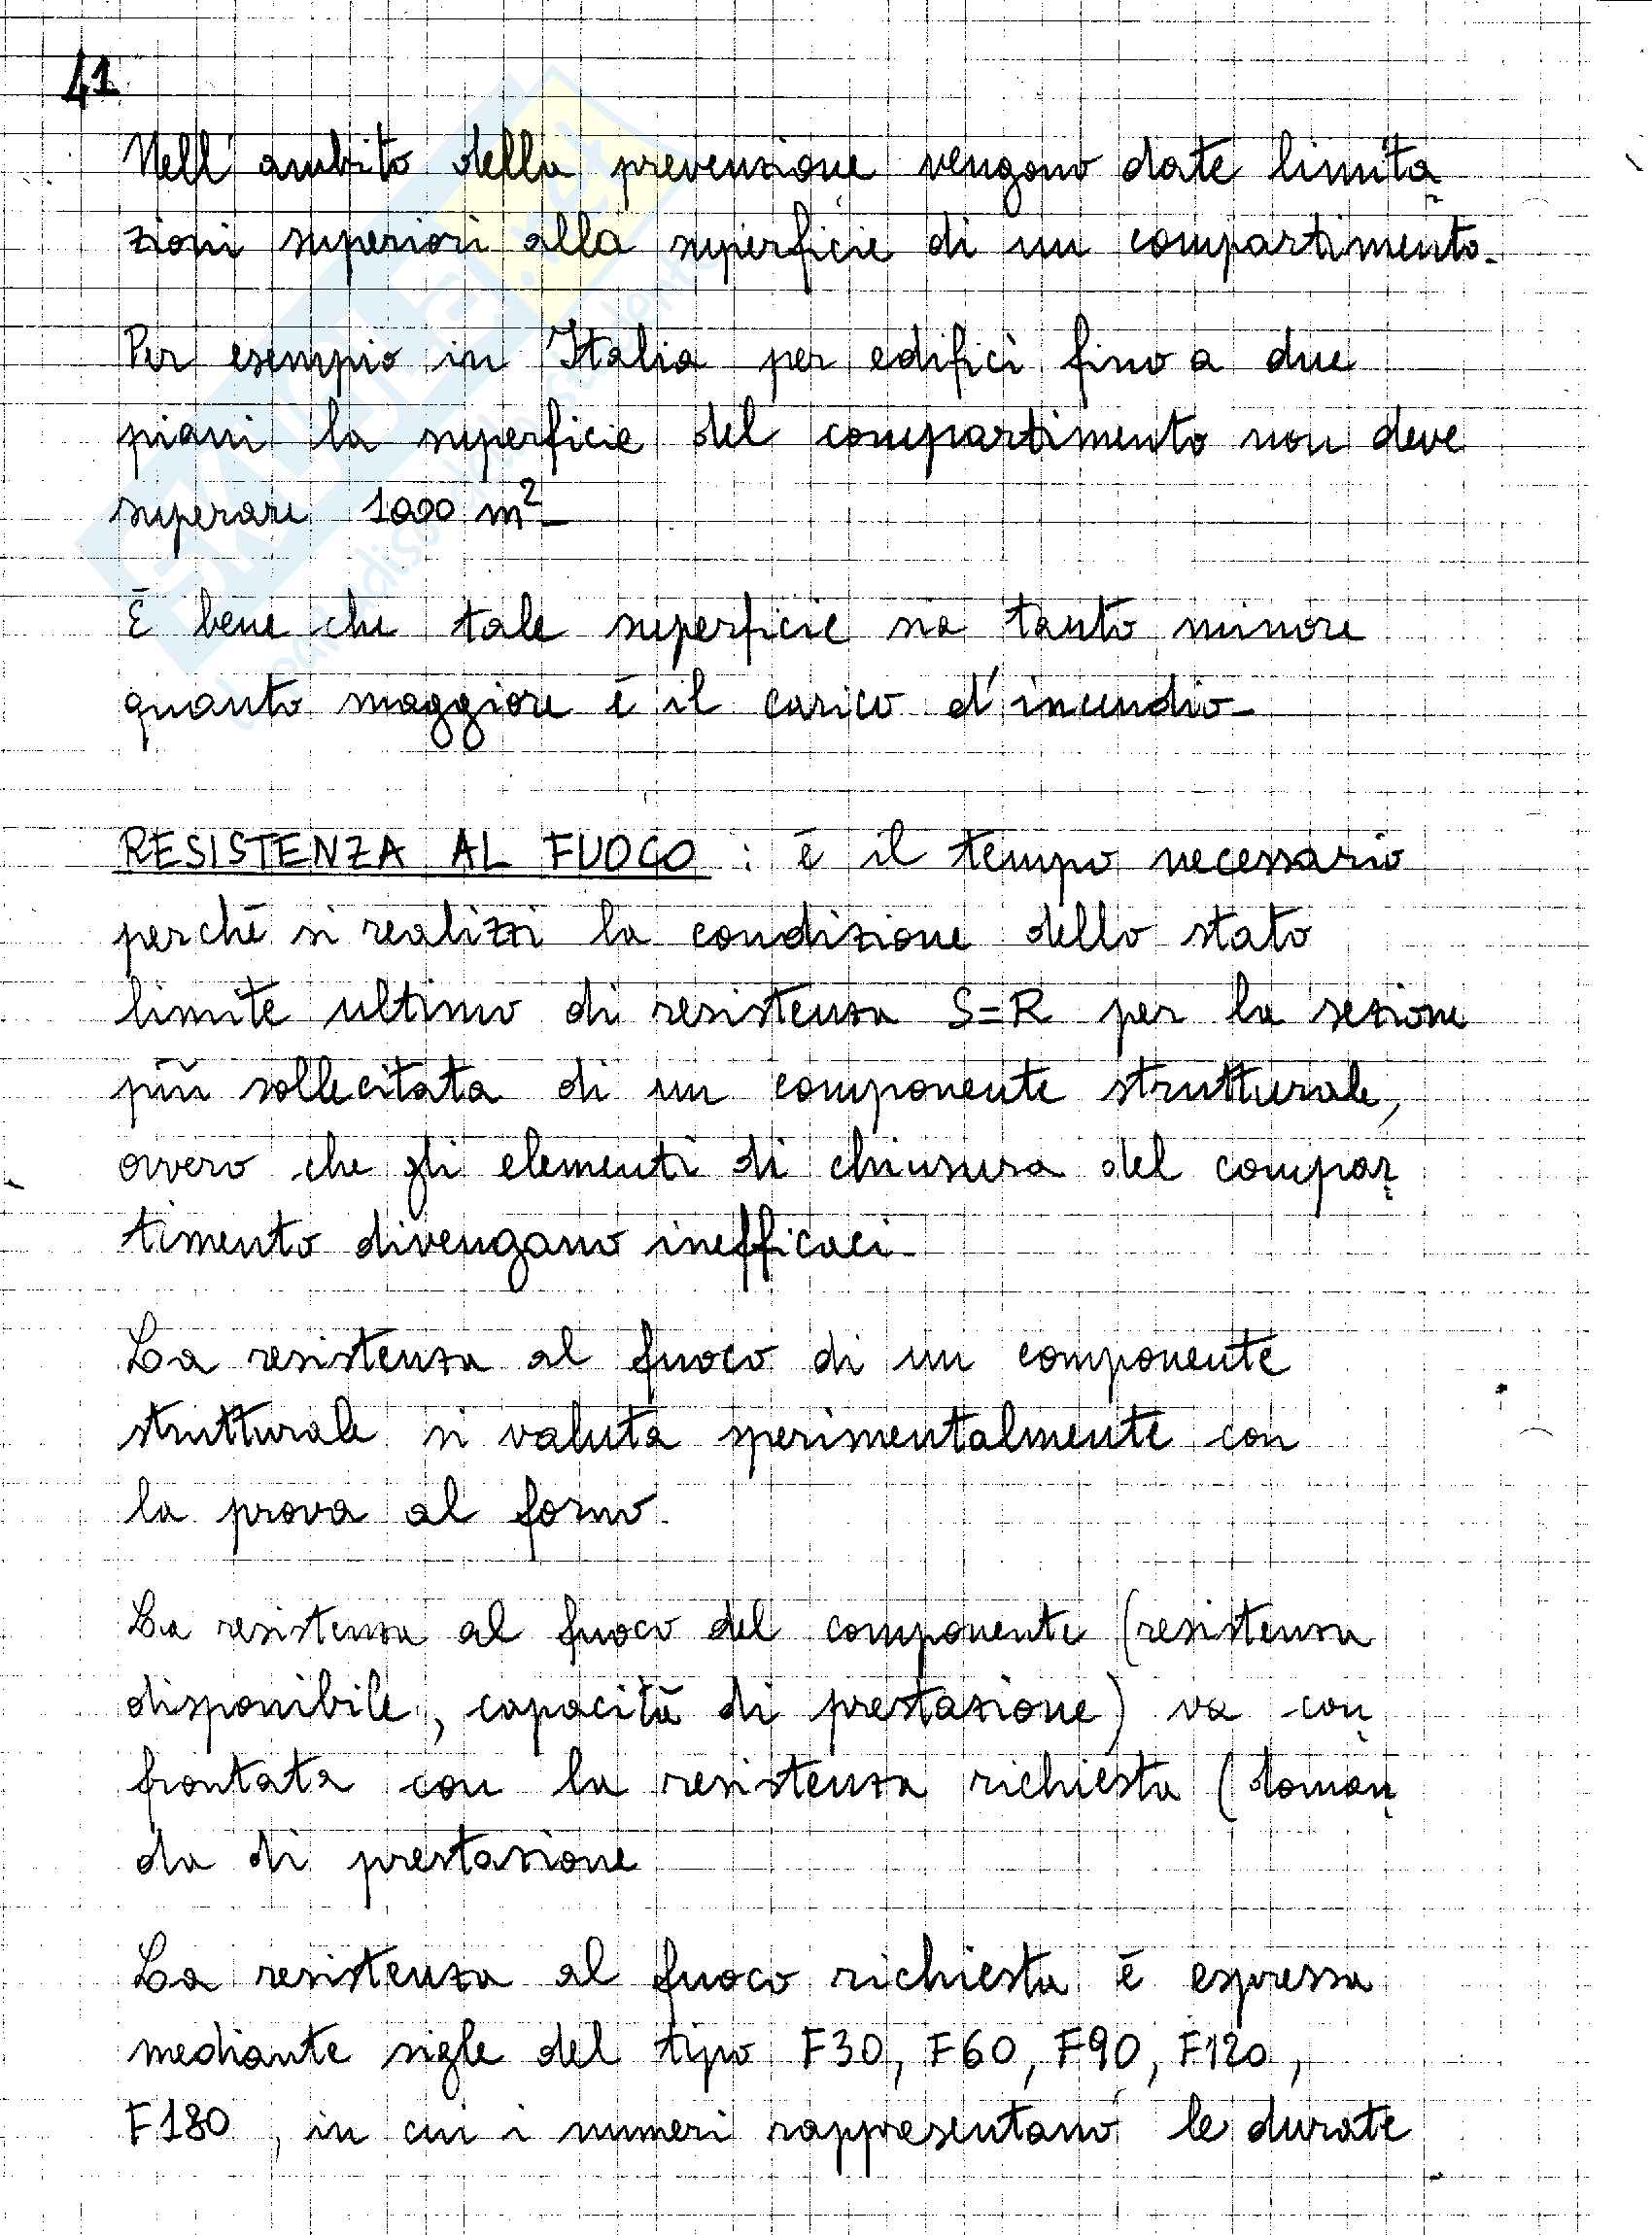 41
Nell'ambito della prevenzione vengono date limita
zioni superiori alla superficie di un compartimento.
Per esempio in Italia per edifici fino a due
piani la superficie del compartimento non deve
superare 1000 m²
È bene che tale superficie sia tanto minore
quanto maggiore è il carico d'incendio
RESISTENZA AL FUOCO : è il tempo necessario
perché si realizzi la condizione dello stato
limite ultimo di resistenza S=R per la sezione
più sollecitata di un componente strutturale,
ovvero che gli elementi di chiusura del compar
timento divengano inefficaci
La resistenza al fuoco di un componente
strutturale si valuta sperimentalmente con
la prova al forno.
La resistenza al fuoco del componente (resistenza
disponibile, capacità di prestazione) va con
frontata con la resistenza richiesta (doman
da di prestazione
La resistenza al fuoco richiesta è espressa
mediante sigle del tipo F30, F60, F90, F120,
F180, in cui i numeri rappresentano le durate